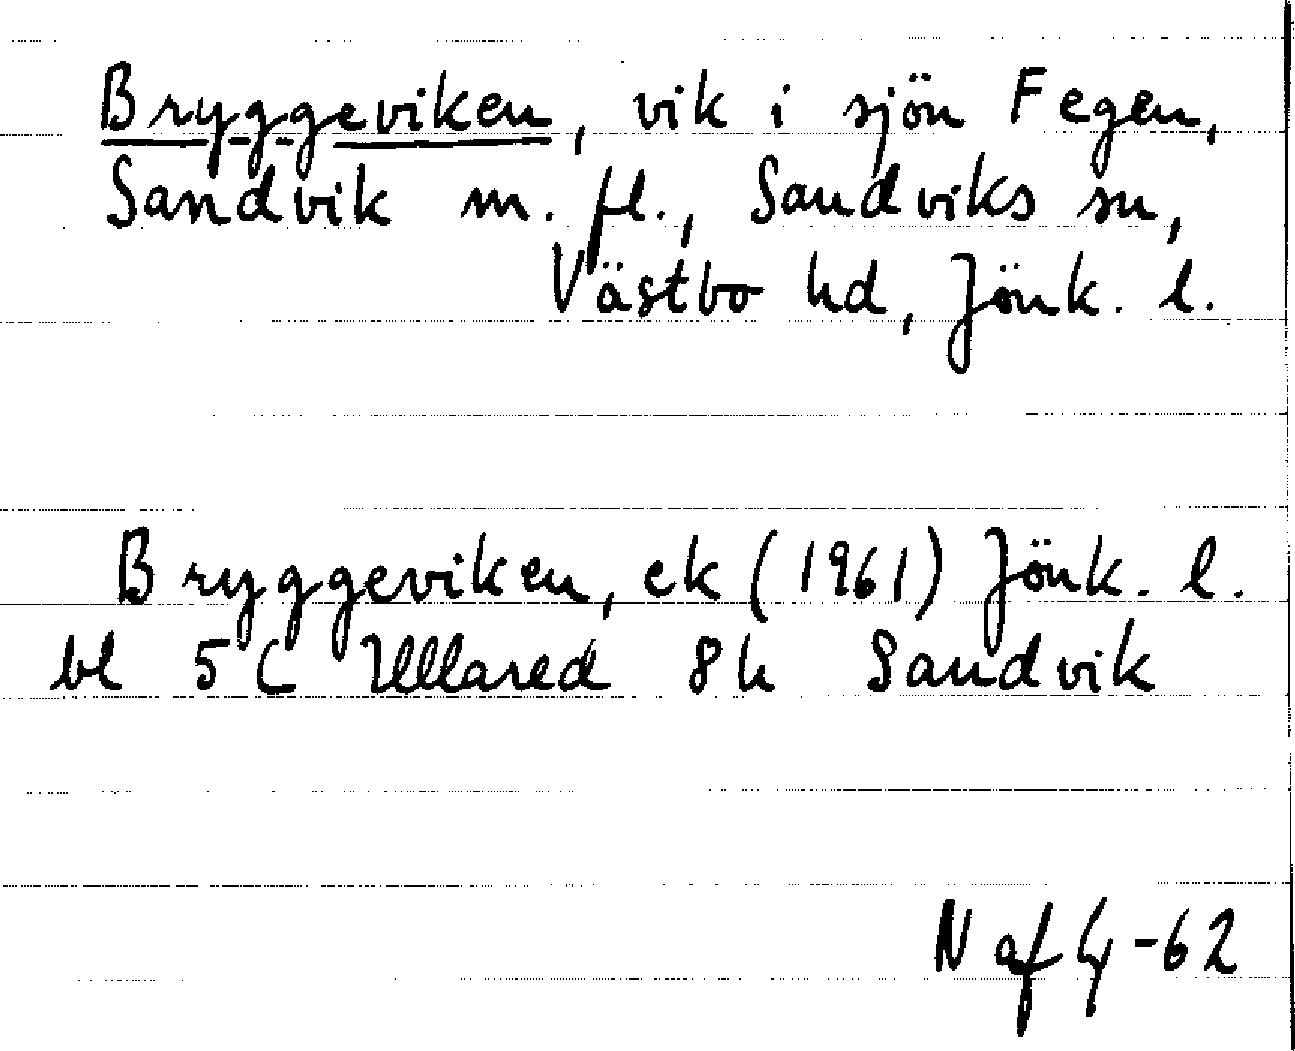 Bryggeviken, vik i sjön Fegen,
Sandvik m. fl., Sandviks sn,
Västbo hd, Jönk. l.
Bryggeviken, ek (1961) Jönk. l.
bl 5 C Ullared 8h Sandvik
N af G -62